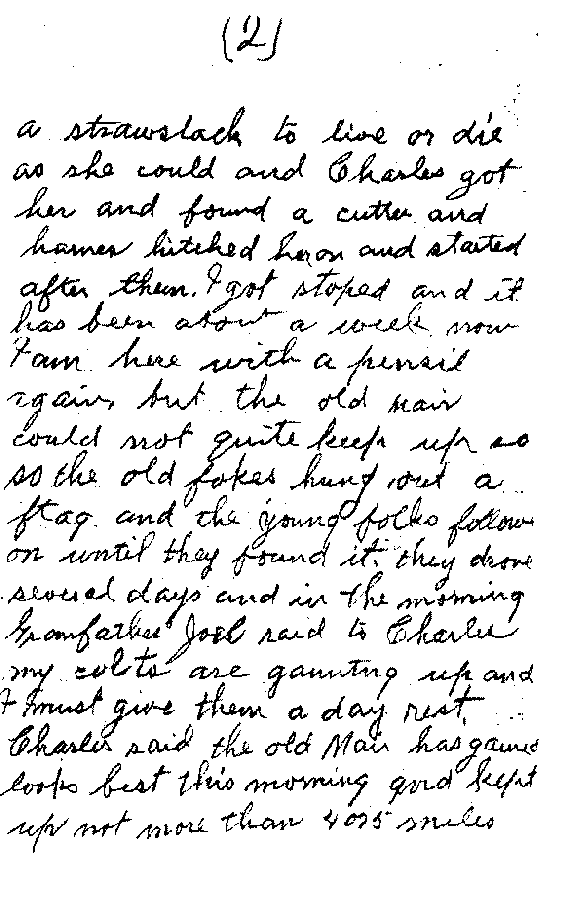 (2)
a strawstack to live or die
as she could and Charles got
her and found a cutter and
harnes hitched her on and started
after them. I got stoped and it
has been about a week now
I am here with a pensil
again, but the old mair
could not quite keep up so
so the old fokes hung out a
flag and the young folks follow
on until they found it. they drove
several days and in the morning
Granfather Joel said to Charles
my colts are gaunting up and
I must give them a day rest.
Charles said the old Mair has gained
looks best this morning and kept
up not more than 4 or 5 miles